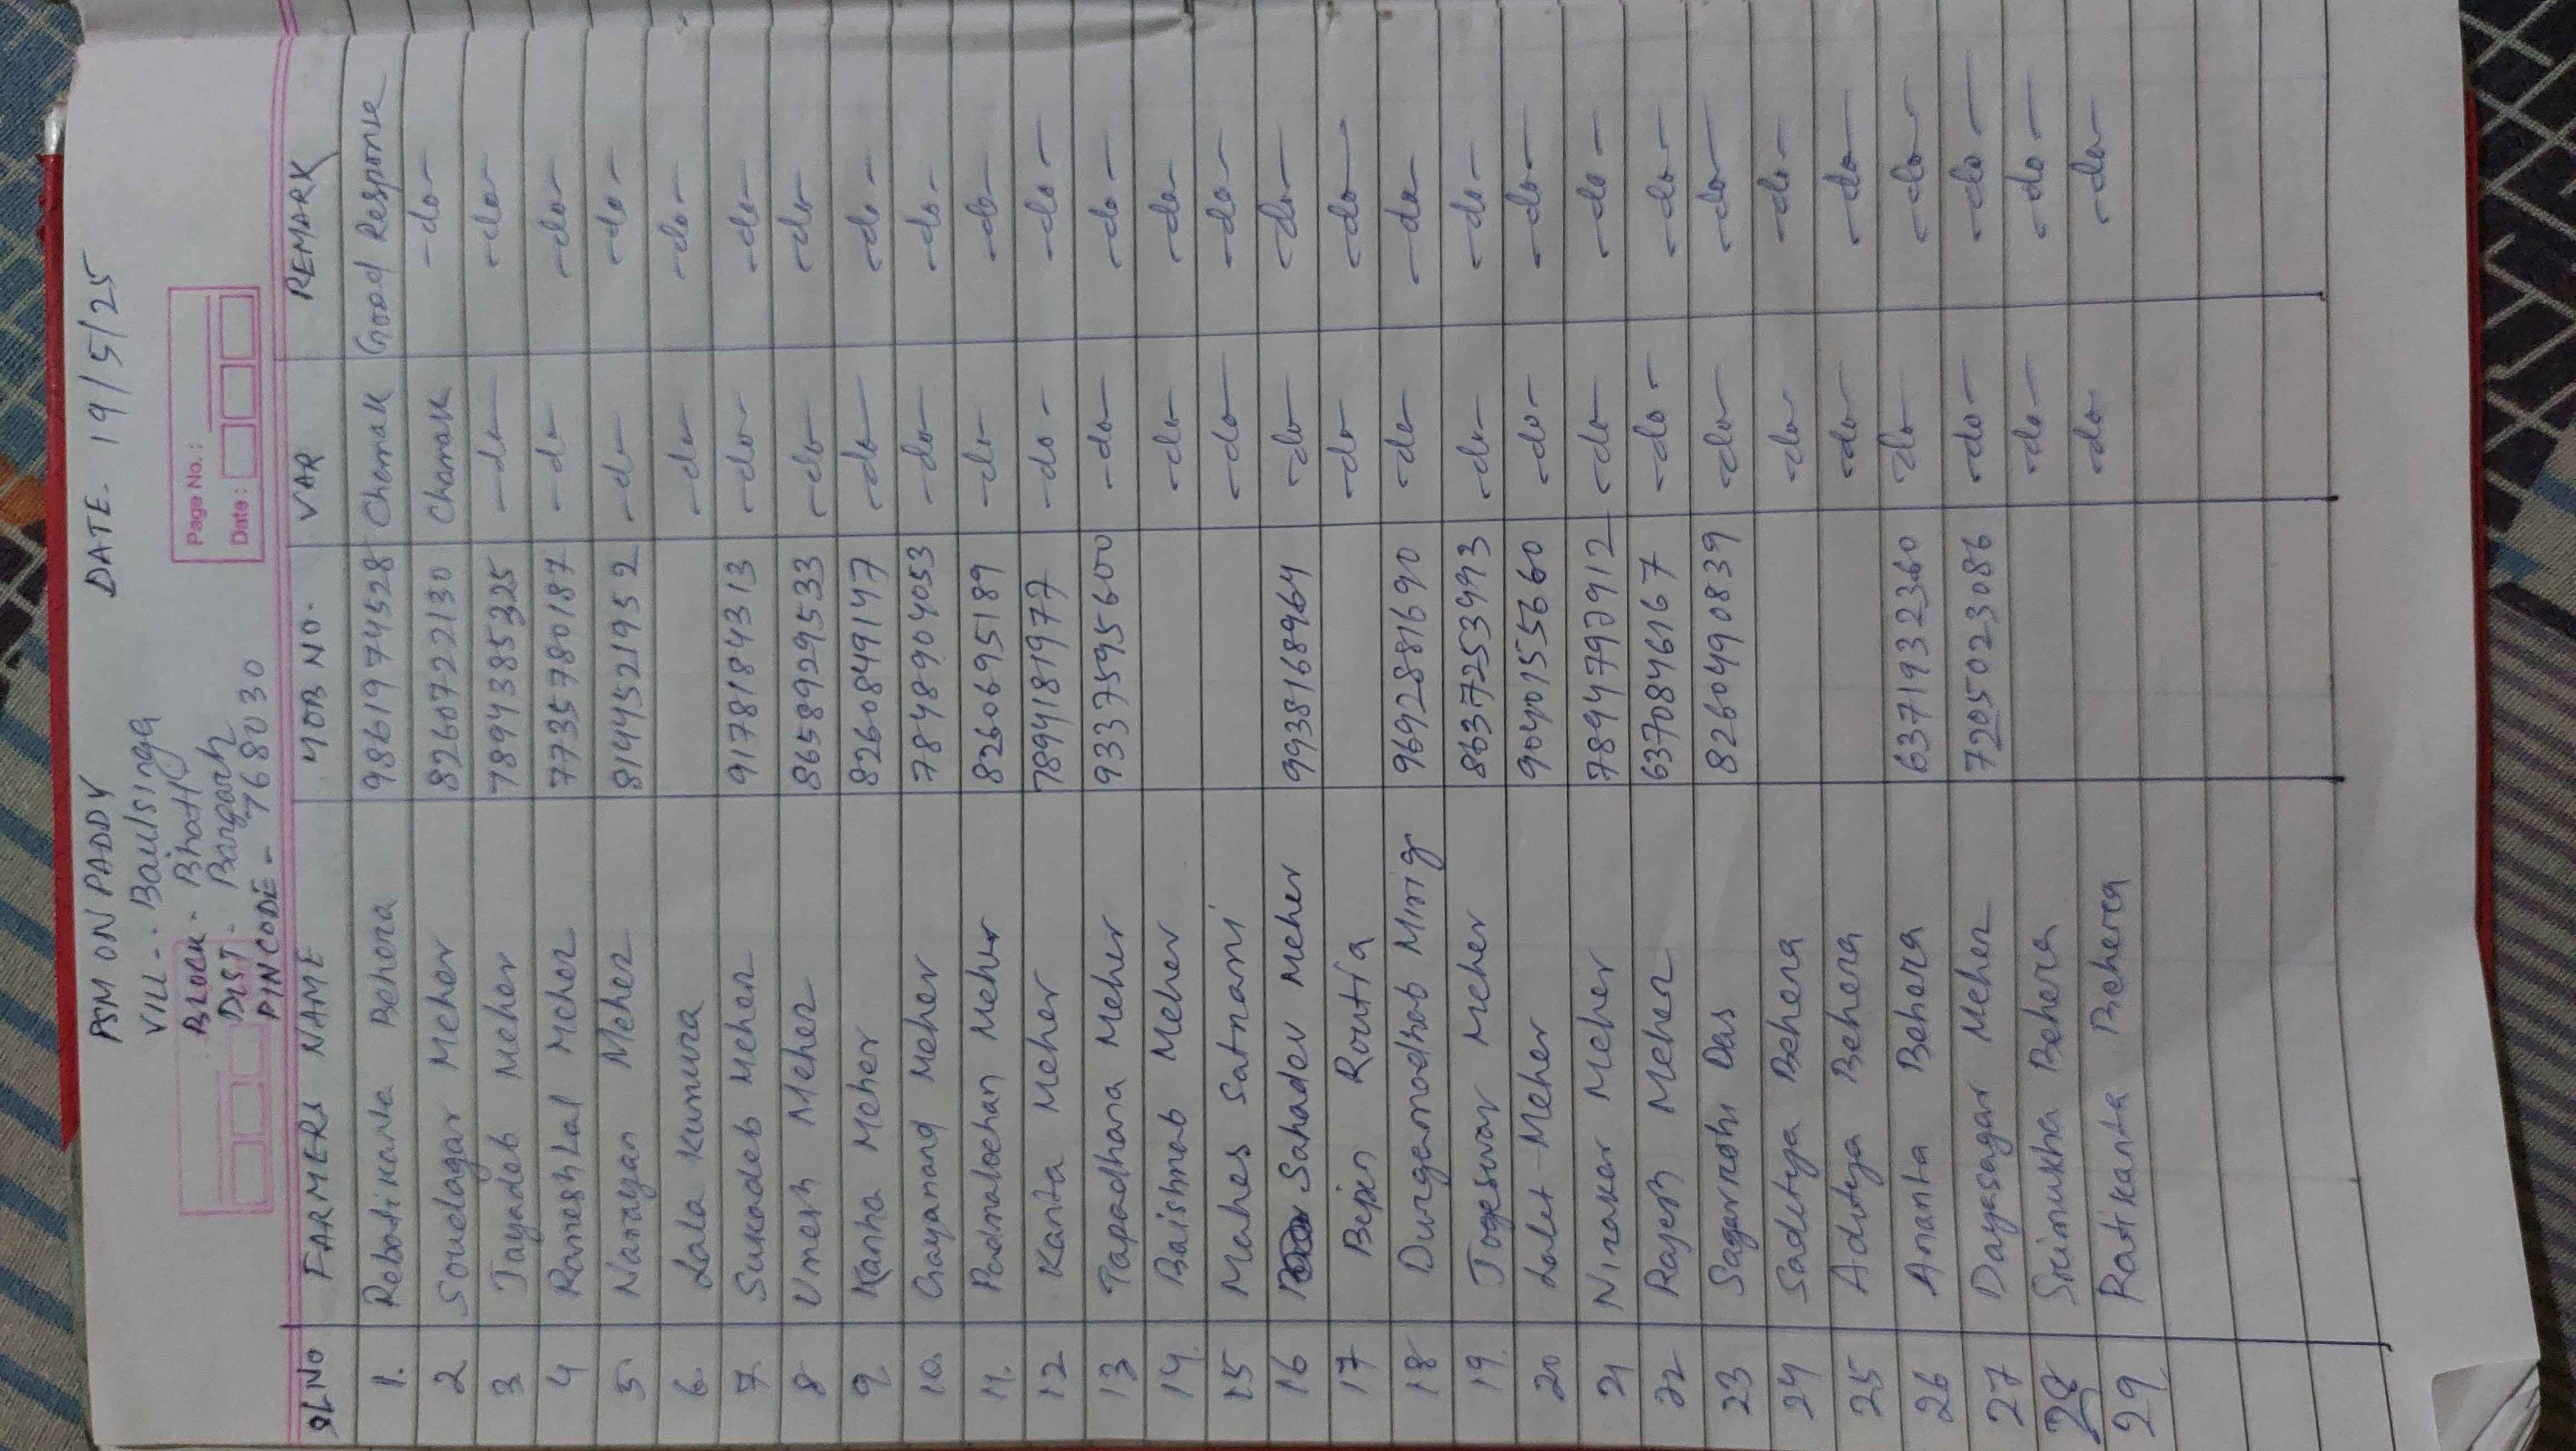 PSM ON PADDY DATE. 19/5/25
VILL - Baulsinga
BLOCK - Bhatli
DIST - Bargarh
PINCODE - 768030
Page No. :
Date :
SL NO FARMERS NAME MOB NO. VAR REMARK
1. Rebatikanta Behera 9861974528 Chamak Good Response
2 Soudagar Meher 8260722130 Chamak -do-
3 Jayadeb Meher 7894385325 -do- -do-
4 Rameshlal Meher 7735780187 -do- -do-
5 Narayan Meher 8144521952 -do- -do-
6. Lala Kumura -do- -do-
7. Sukadeb Meher 9178184313 -do- -do-
8 Umesh Meher 8658929533 -do- -do-
9. Kanha Meher 8260849147 -do- -do-
10. Gayanand Meher 7848904053 -do- -do-
11. Padmalochan Meher 8260695189 -do- -do-
12 Kanta Meher 7894181977 -do- -do-
13 Tapadhana Meher 9337595600 -do- -do-
14. Baishnab Meher -do- -do-
15 Mahes Satnami -do- -do-
16 Sahadev Meher 9938168964 -do- -do-
17 Bipin Routia -do- -do-
18 Durgamadhab Mirig 9692881690 -do- -do-
19. Jogeswar Meher 8637253993 -do- -do-
20 Lalit Meher 9040155660 -do- -do-
21 Nirakar Meher 7894797912 -do- -do-
22 Rajesh Meher 6370846167 -do- -do-
23 Sagarnath Das 8260490839 -do- -do-
24 Saditya Behera -do- -do-
25 Aditya Behera -do- -do-
26 Ananta Behera 6371932360 -do- -do-
27 Dayasagar Meher 7205023086 -do- -do-
28 Srimukha Behera -do- -do-
29 Ratikanta Behera -do- -do-